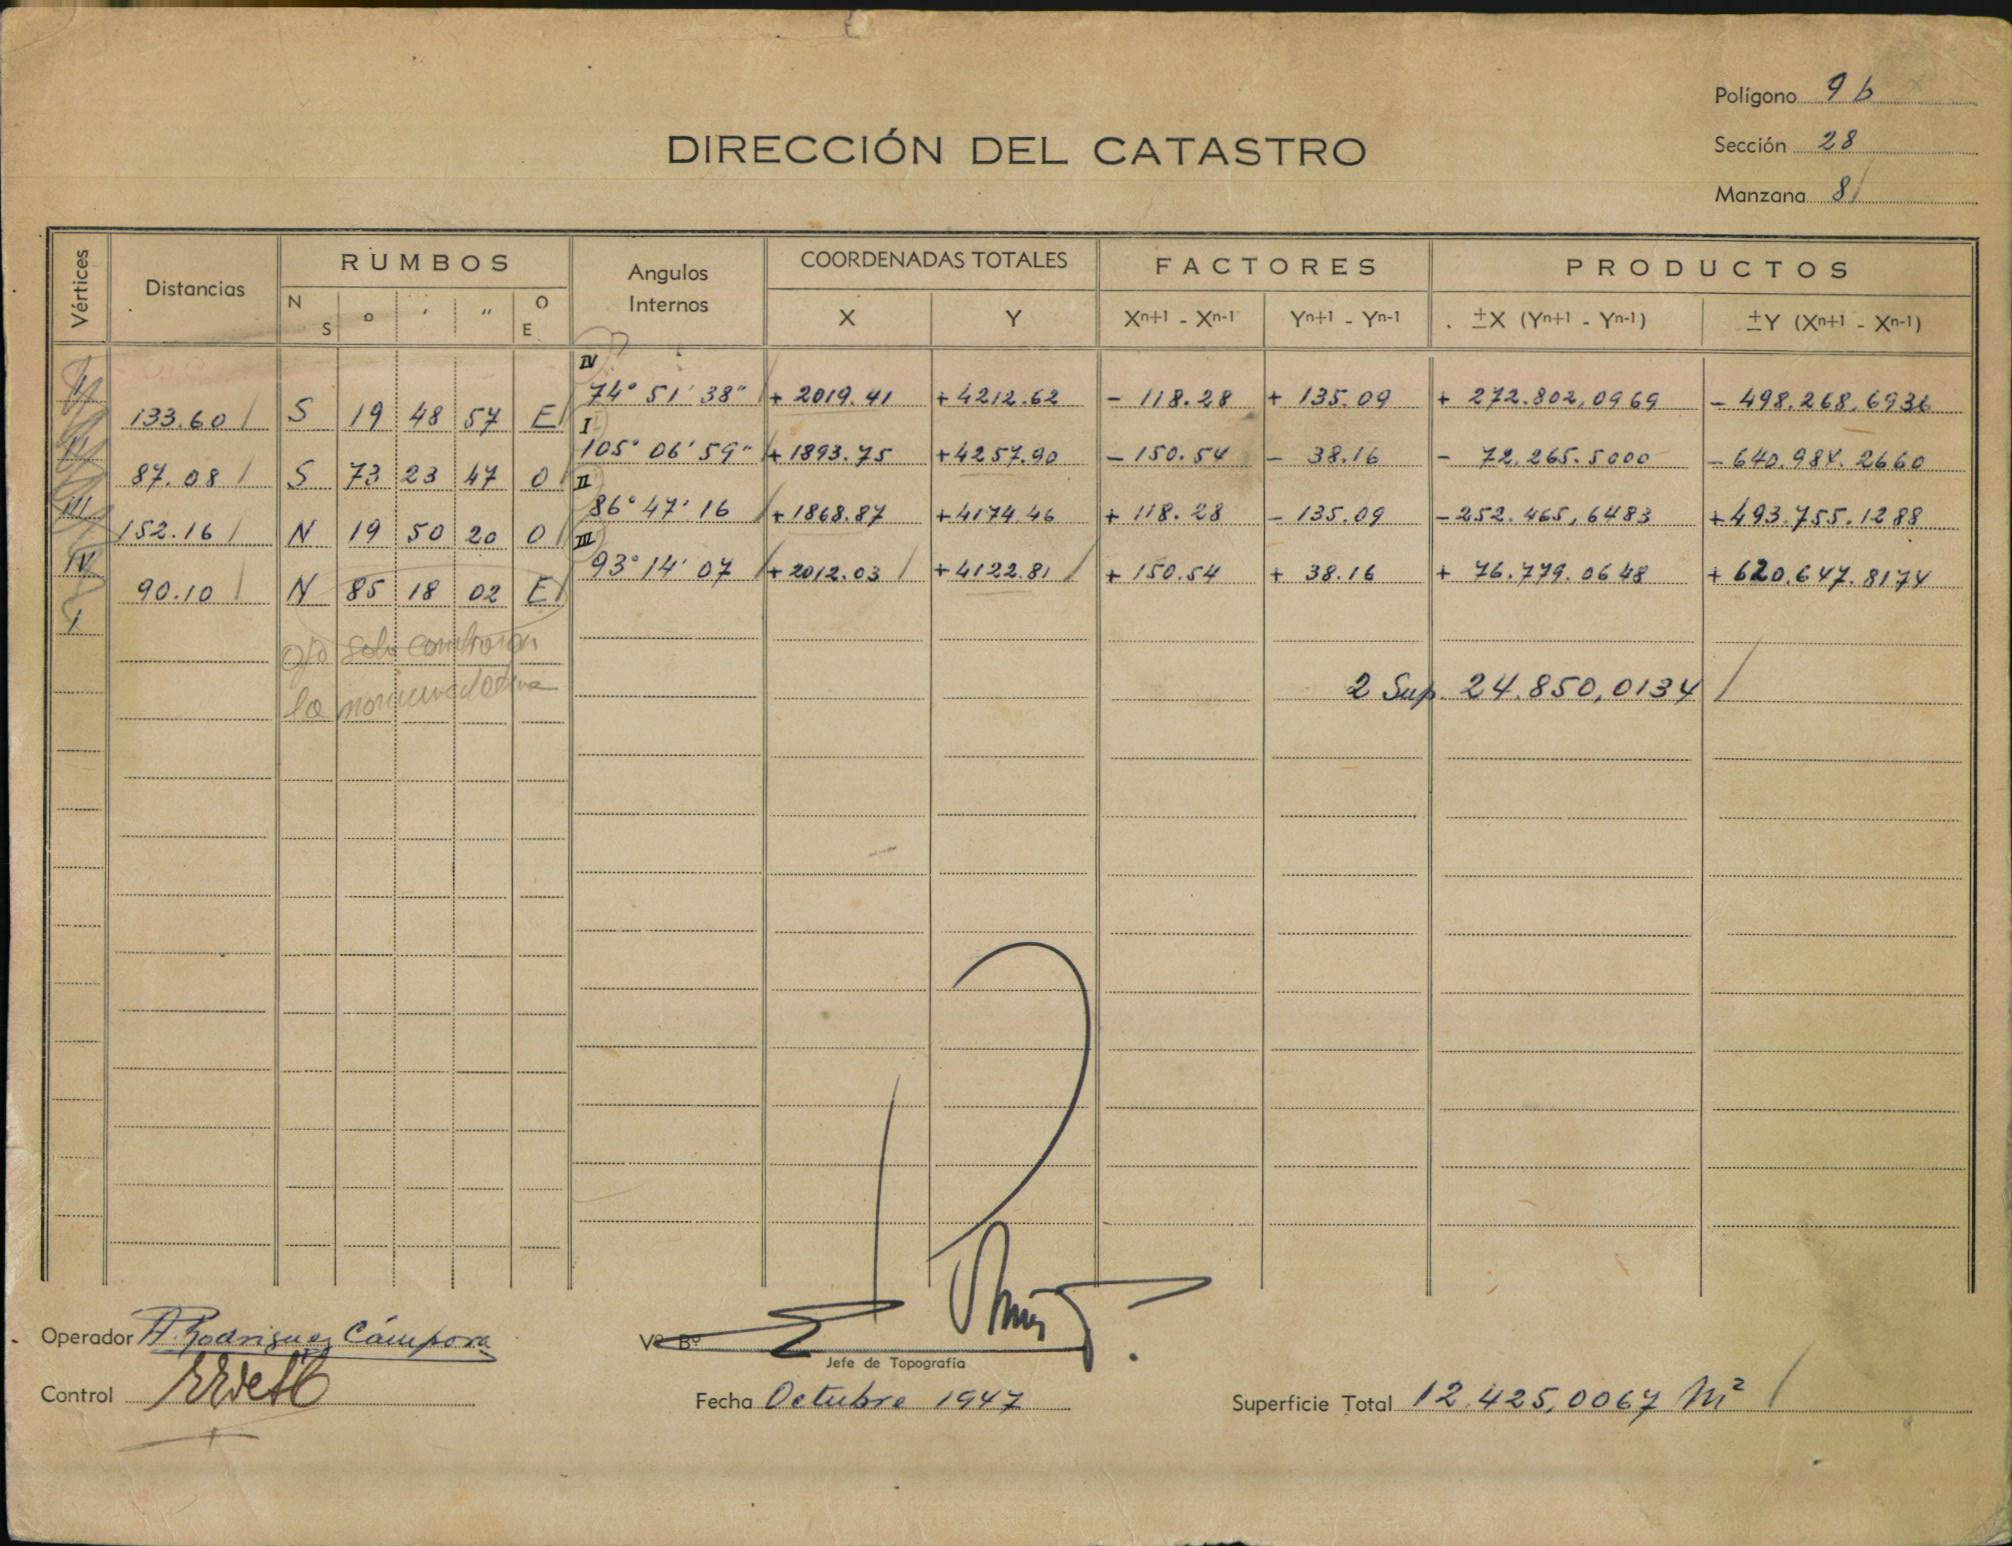 Polígono 9 b
DIRECCIÓN DEL CATASTRO
Sección 28
Manzana 8
Vértices Distancias RUMBOS Angulos Internos COORDENADAS TOTALES FACTORES PRODUCTOS
N S ° ' " O E X Y Xn+1 - Xn-1 Yn+1 - Yn-1 ±X (Yn+1 - Yn-1) ±Y (Xn+1 - Xn-1)
IV
74° 51' 38" + 2019.41 +4212.62 - 118.28 + 135.09 + 272.802,0969 - 498.268,6936
133.60 S 19 48 57 E I
105° 06' 59" +1893.75 +4257.90 - 150.54 - 38.16 - 72.265.5000 - 640.984.2660
87.08 S 73 23 47 O II
III 86° 47' 16 +1868.87 +4174.46 + 118.28 - 135.09 - 252.465,6483 +493.755.1288
152.16 N 19 50 20 O III
IV 93° 14' 07 +2012.03 +4122.81 + 150.54 + 38.16 + 76.779.0648 + 620.647.8174
90.10 N 85 18 02 E
I
ojo solo
la
2 Sup. 24.850,0134
Operador A. Rodriguez Cámpora
Vº Bº
Jefe de Topografía
Control
Fecha Octubre 1947
Superficie Total 12.425,0067 m²